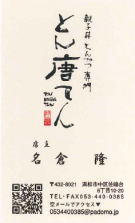 親子丼とんかつ専門
とん唐てん
店主
名倉 隆
〒432-8021 浜松市中区佐鳴台
5丁目10-20
TEL・FAX053-440-0385
Eメールでアクセス▼
0534400385@padomo.jp